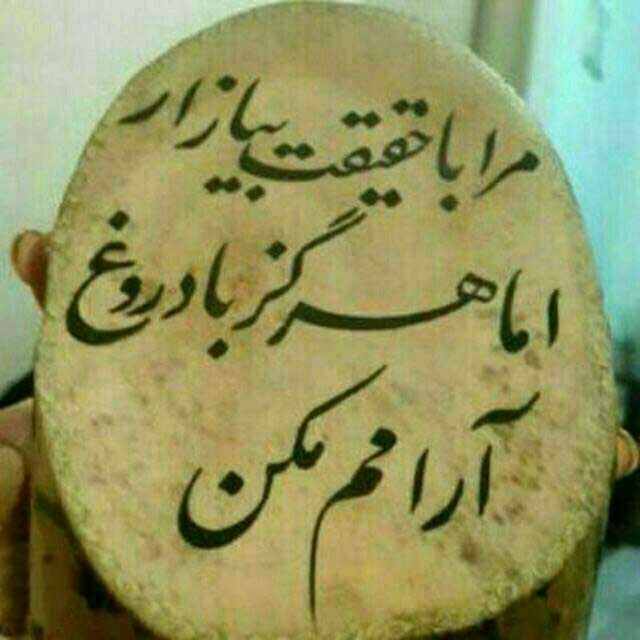 مرا با حقیقت بیازار
اما هرگز با دروغ
آرامم مکن